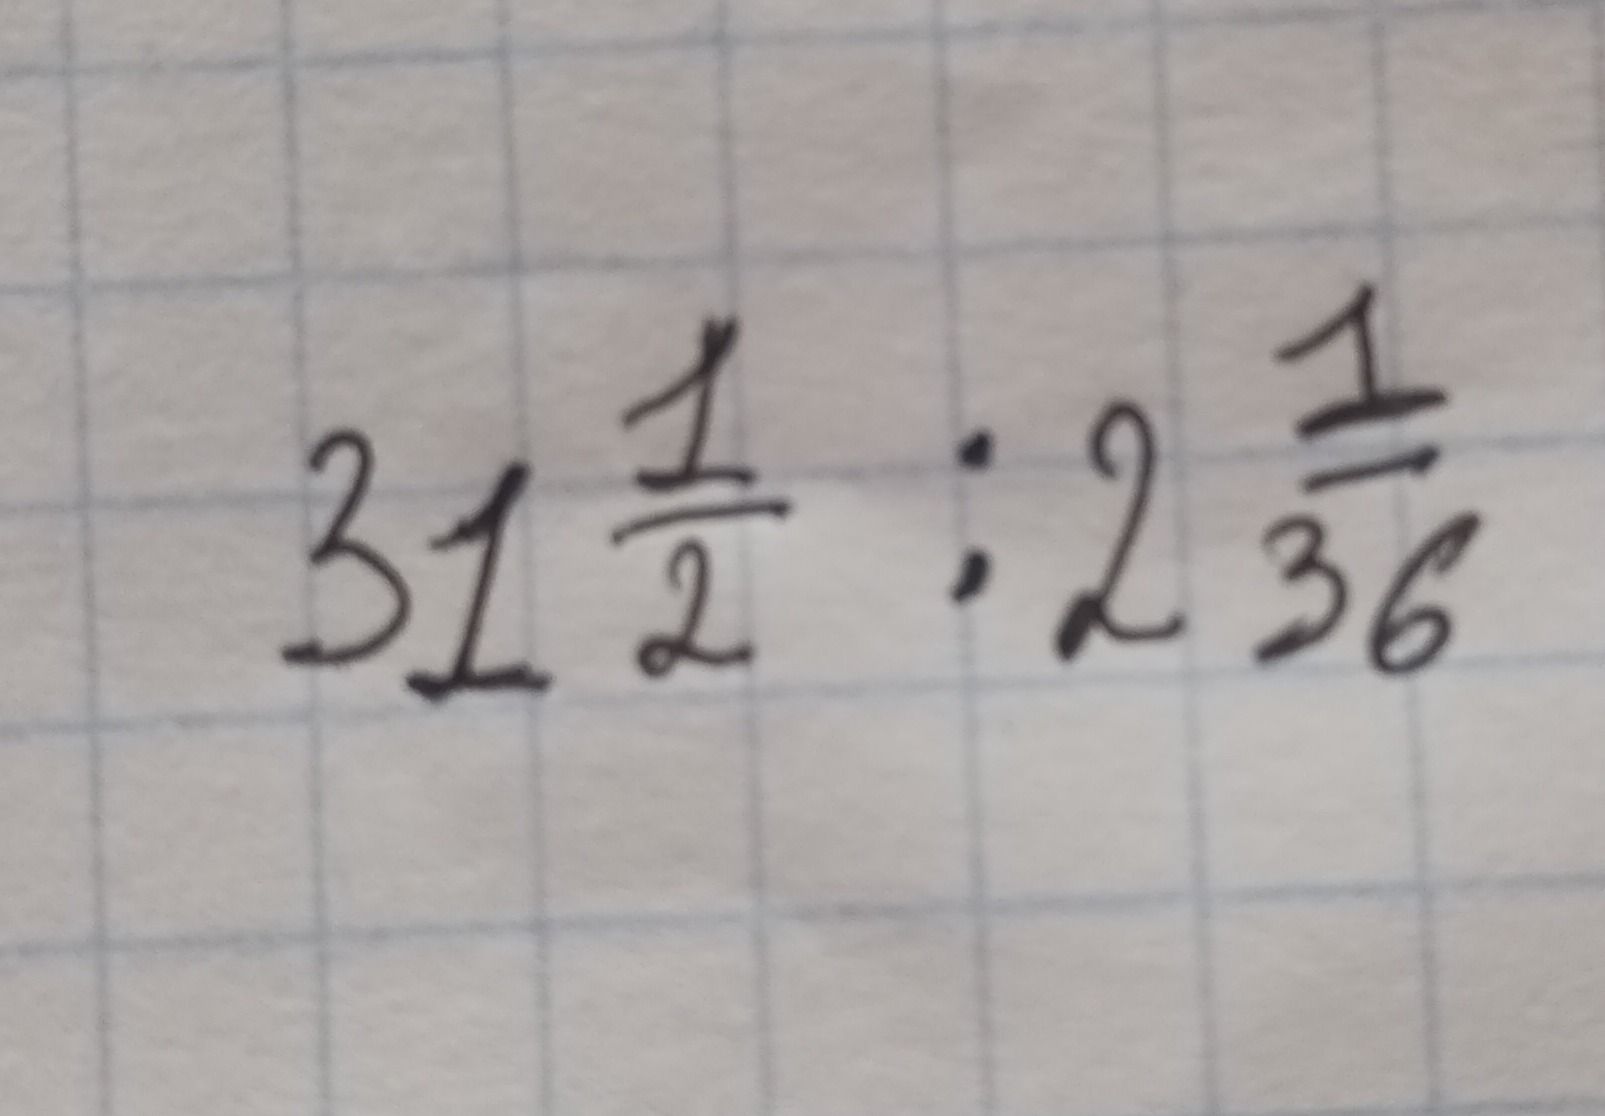 31 1/2 : 2 1/36